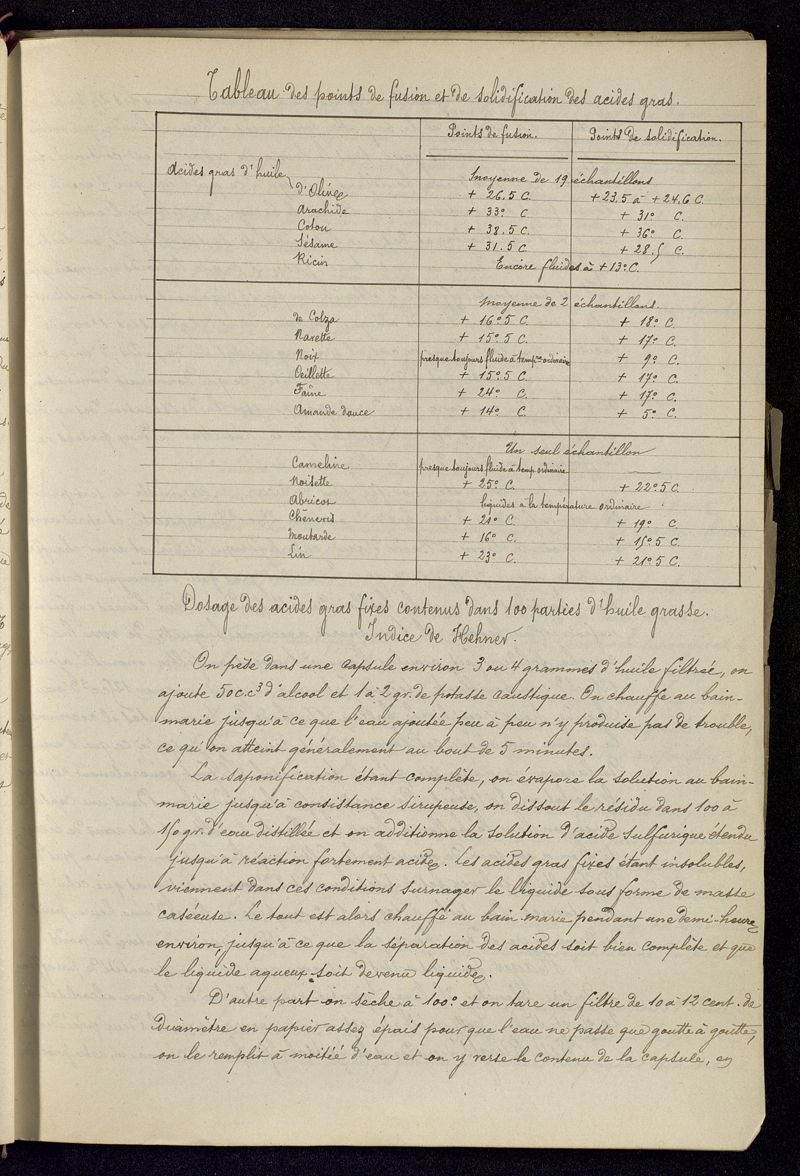 Tableau des points de fusion et de solidification des acides gras.
Points de fusion. Points de solidification.
Acides gras d'huile Moyenne de 19 échantillons
d'Olive + 26.5 C. + 23.5 à + 24.6 C.
Arachide + 33° C. + 31° C.
Coton + 38.5 C. + 36° C.
Sésame + 31.5 C. + 28.5 C.
Ricin Encore fluides à + 13° C.
Moyenne de 2 échantillons.
de Colza + 16°5 C. + 18° C.
Navette + 15°5 C. + 17° C.
Noix presque toujours fluide à temp.re ordinaire + 9° C.
Oeillette + 15°5 C. + 17° C.
Faîne + 24° C. + 17° C.
Amande douce + 14° C. + 5° C.
Un seul échantillon
Cameline presque toujours fluide à temp. ordinaire
Noisette + 25° C. + 22°5 C.
Abricot liquides à la température ordinaire
Chènevis + 21° C. + 19° C.
Moutarde + 16° C. + 15°5 C.
Lin + 23° C. + 21°5 C.
Dosage des acides gras fixes contenus dans 100 parties d'huile grasse.
Indice de Hehner.
On pèse dans une capsule environ 3 ou 4 grammes d'huile filtrée, on
ajoute 50 c.c³ d'alcool et 1 à 2 gr. de potasse caustique. On chauffe au bain-
marie jusqu'à ce que l'eau ajoutée peu à peu n'y produise pas de trouble,
ce qu'on atteint généralement au bout de 5 minutes.
La saponification étant complète, on évapore la solution au bain-
marie jusqu'à consistance sirupeuse, on dissout le résidu dans 100 à
150 gr. d'eau distillée et on additionne la solution d'acide sulfurique étendu
jusqu'à réaction fortement acide. Les acides gras fixes étant insolubles,
viennent dans ces conditions surnager le liquide sous forme de masse
caséeuse. Le tout est alors chauffé au bain marie pendant une demi-heure
environ, jusqu'à ce que la séparation des acides soit bien complète et que
le liquide aqueux soit devenu liquide.
D'autre part on sèche à 100° et on tare un filtre de 10 à 12 cent. de
diamètre en papier assez épais pour que l'eau ne passe que goutte à goutte,
on le remplit à moitié d'eau et on y verse le contenu de la capsule, en